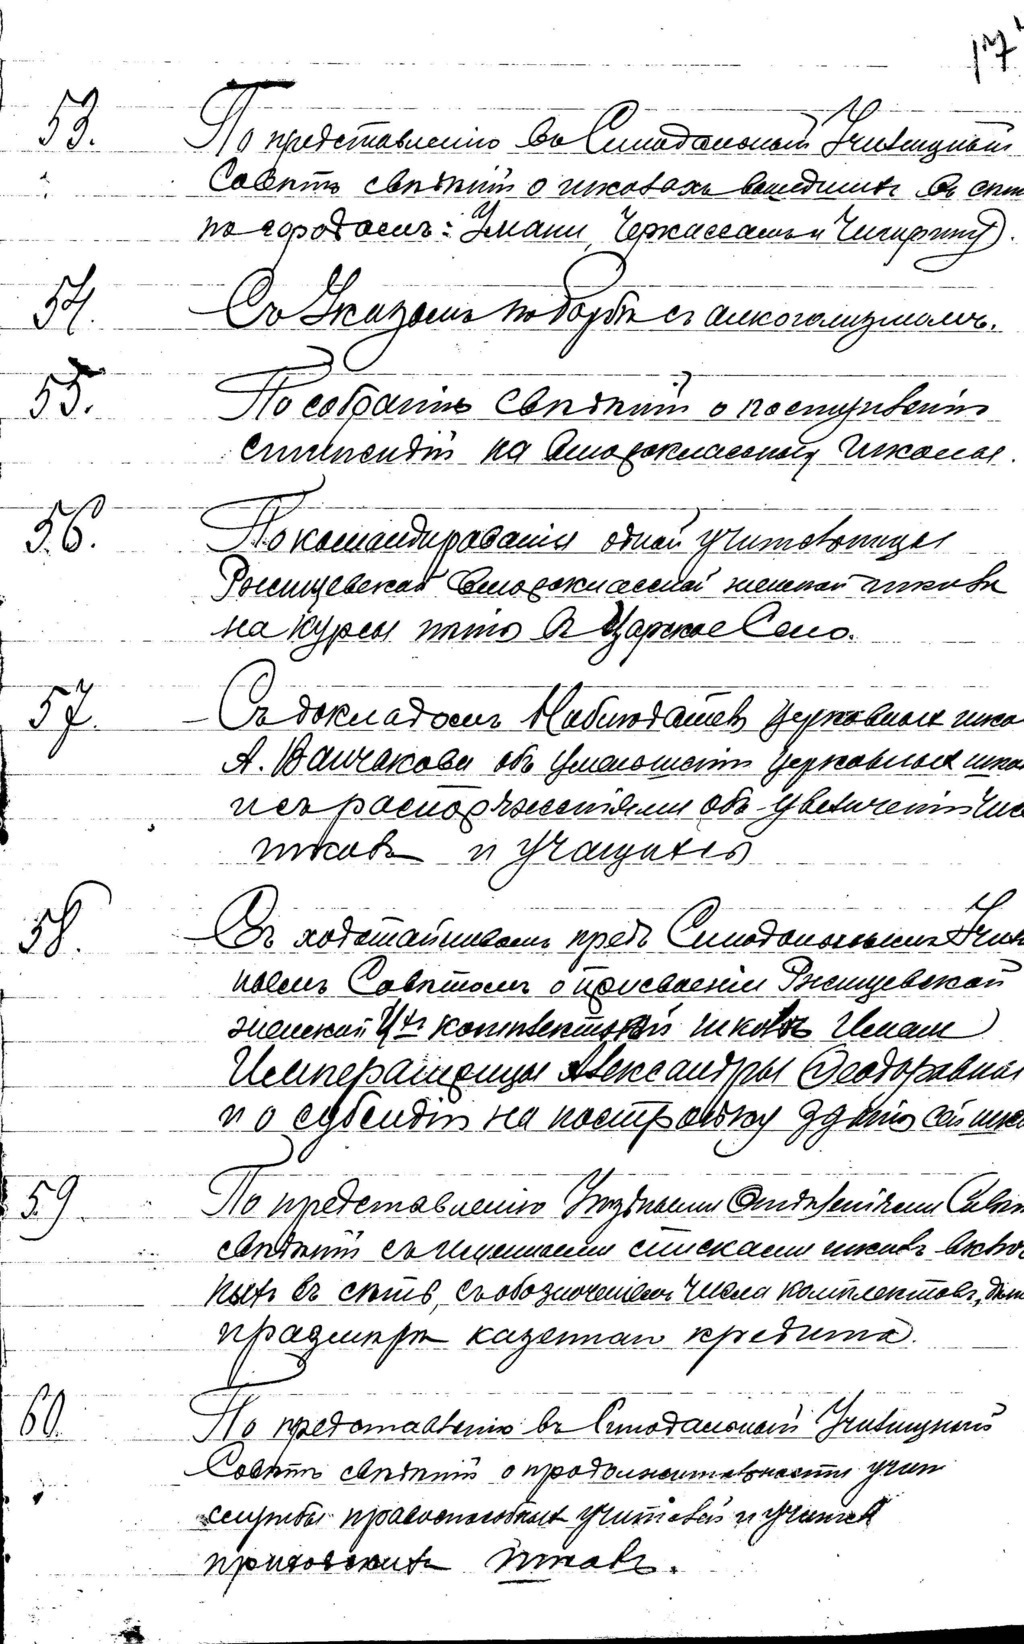 53. По представленію въ Синодальный Училищный
Совѣтъ свѣдѣній о школахъ вошедшихъ въ сѣт
по городамъ: Умани, Черкассамъ и Чигирину).
54. Съ Указомъ по борьбѣ съ алкоголизмомъ.
55. По собранію свѣдѣній о поступленіи
стипендій на второклассныя школы.
56. По командированія одной учительницы
Ржищевской второклассной женской школы
на курсы пѣнія въ Царское Село.
57. Съ докладомъ Наблюдателя церковныхъ шко
А. Ванчакова объ уменьшеніи церковныхъ шко
и съ распоряженіями объ увеличеніи чис
школъ и учащихся
58. Съ ходатайствомъ предъ Синодальнымъ Учил
нымъ Совѣтомъ о присвоеніи Ржищевской
женской школѣ Имени
Императрицы Александры Ѳеодоровны
и о субсидіи на постройку зданія сей шко
59. По представленію Уѣздными Отдѣленіями Совѣт
свѣдѣній съ именными списками школъ включ
ныхъ въ сѣть, съ обозначеніемъ числа комплектовъ, дѣт
и размѣра казеннаго кредита.
60. По представленію въ Синодальный Училищный
Совѣтъ свѣдѣній о продолжительности учит
службы правоспособныхъ учителей и учител
приходскихъ школъ.